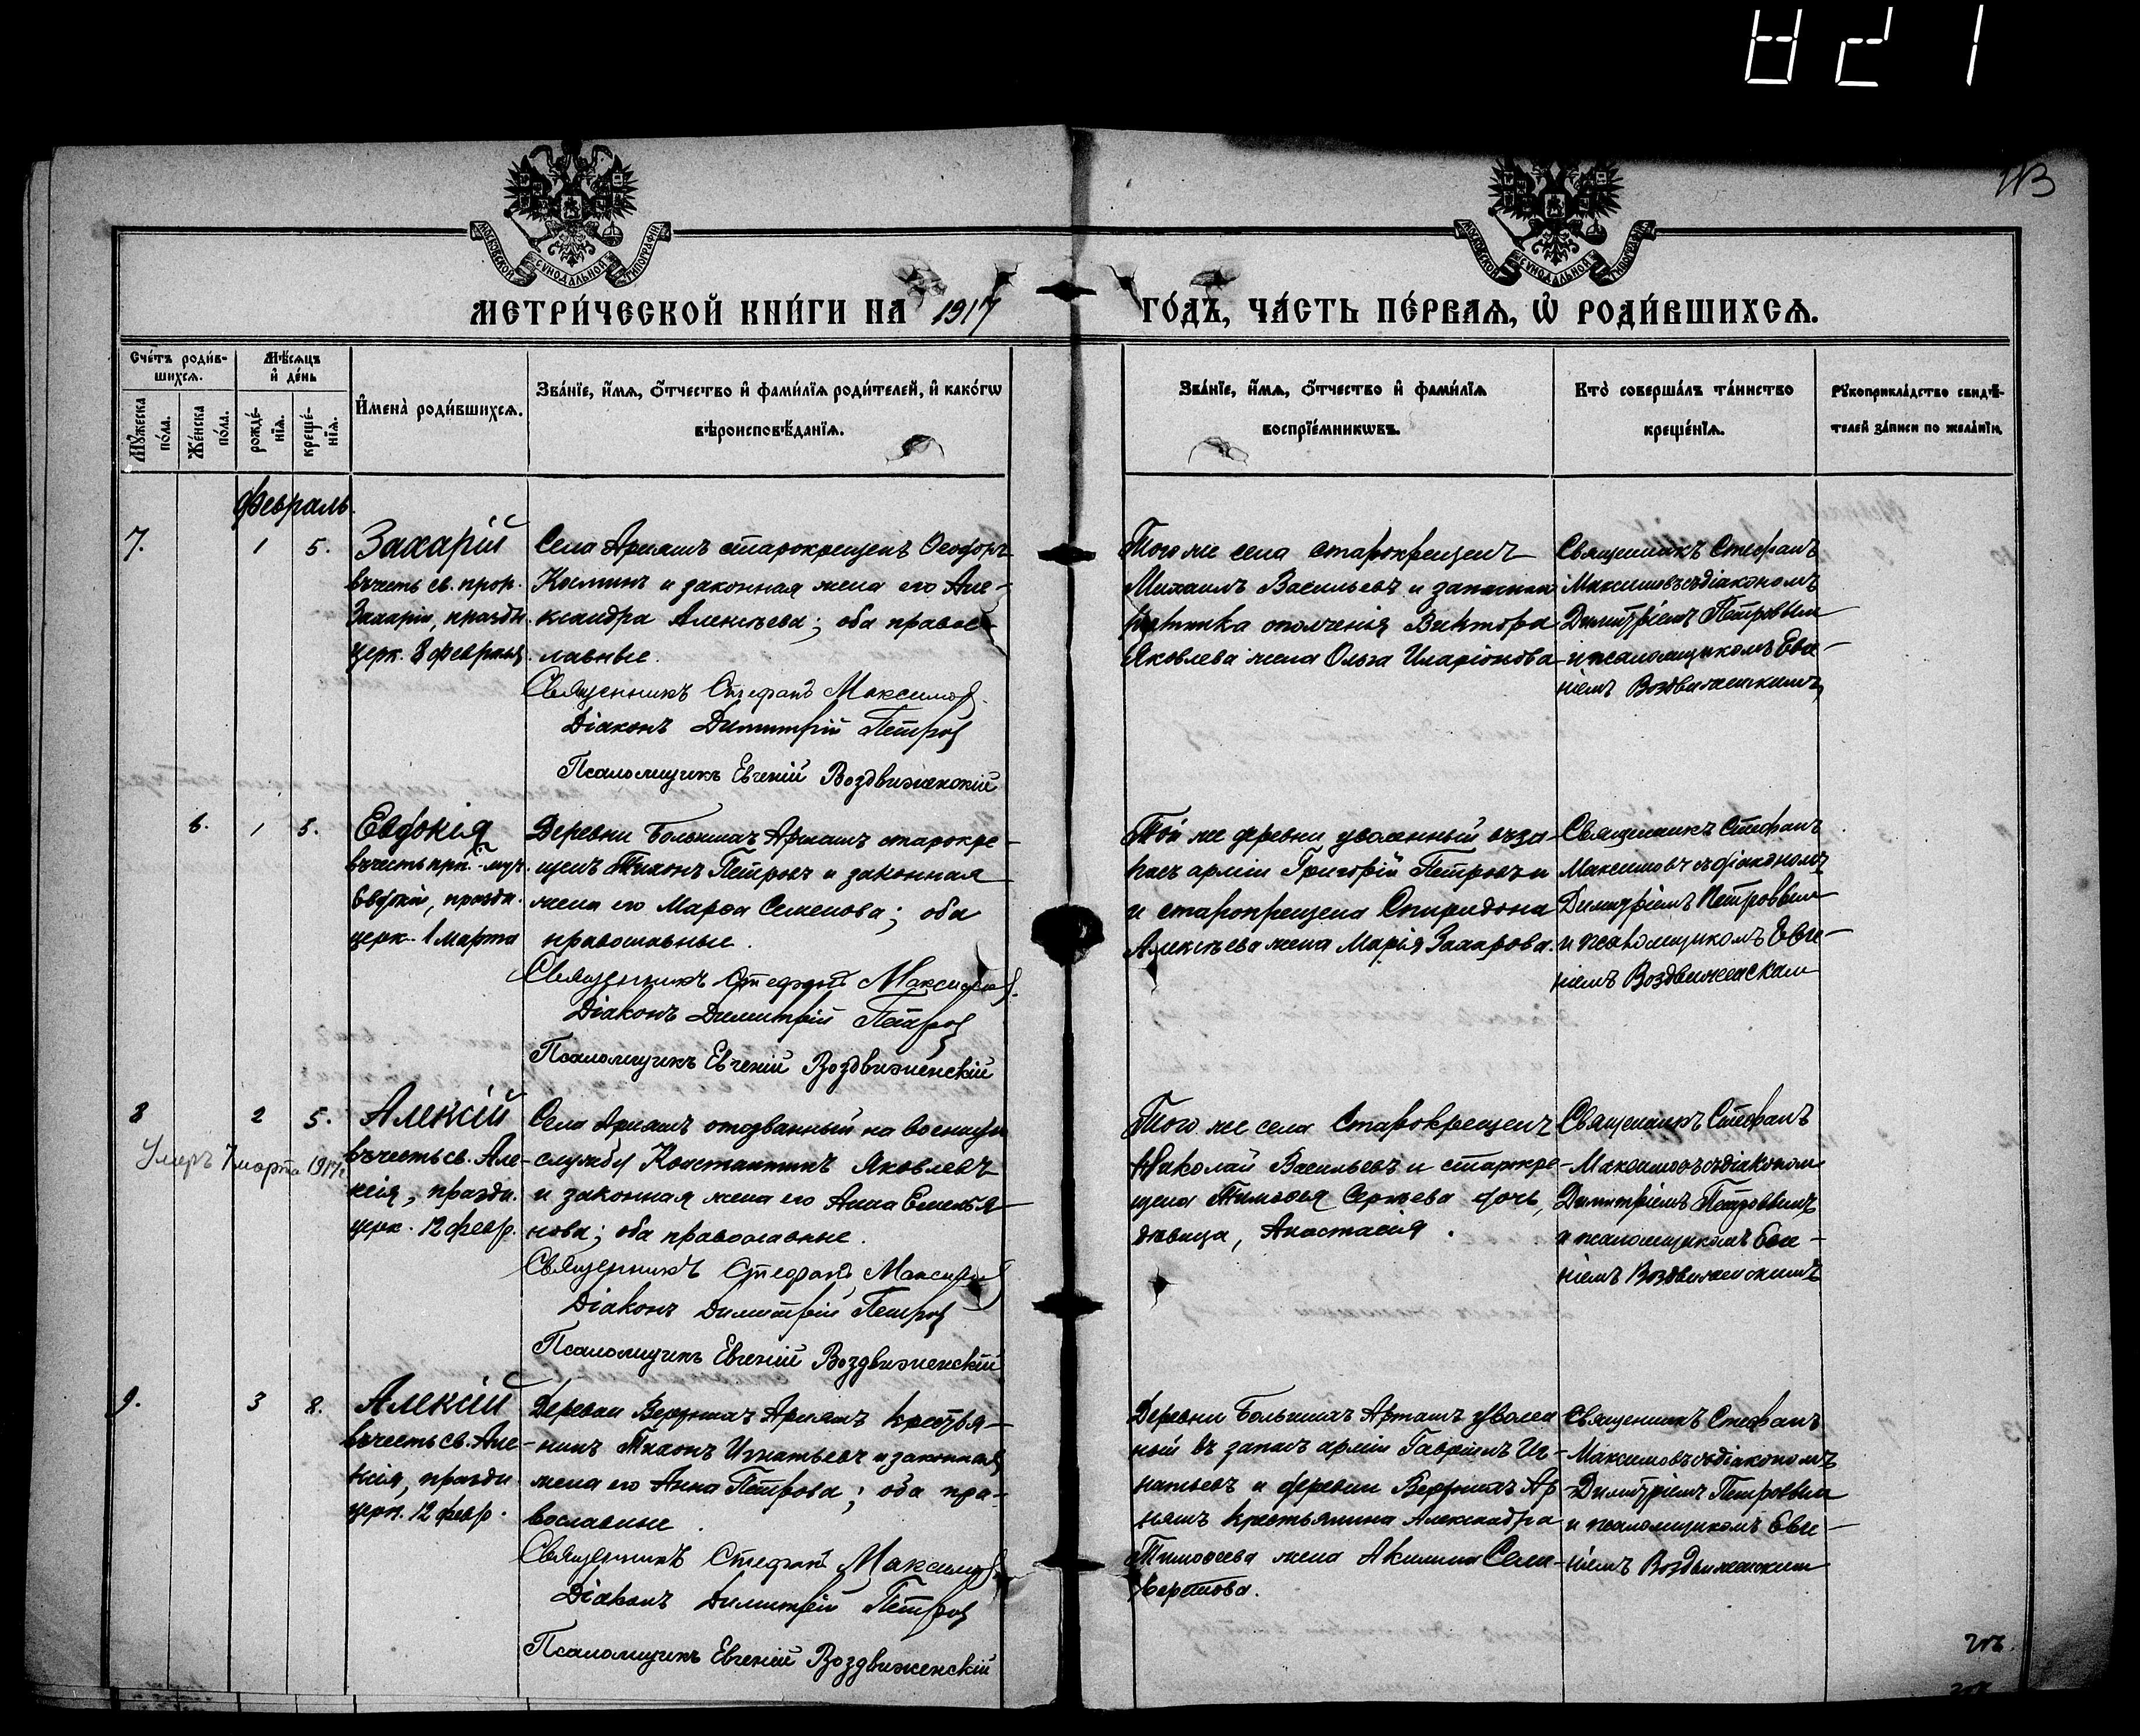 МЕТРИ́ЧЕСКОЙ КНИ́ГИ НА 1917 ГО́ДЪ, ЧА́СТЬ ПЕ́РВАЯ, Ѡ РОДИ́ВШИХСЯ.
Сче́тъ роди́в-
шихся.
Мѣ́сяцъ
и҆ де́нь
Мꙋ́жеска
по́ла.
Же́нска
по́ла.
рожде́-
нїя.
креще́-
нїя.
И҆мена̀ роди́вшихся.
Зва́нїе, и҆́мя, ѻ҆́тчество и҆ фами́лїя роди́телей, и҆ како́гѡ
вѣроисповѣ́данїя.
Зва́нїе, и҆́мя, ѻ҆́тчество и҆ фами́лїя
воспрїе́мникѡвъ.
Кто̀ соверша́лъ та́инство
креще́нїя.
Рꙋкоприкла́дство свидѣ́-
телей за́писи по жела́нїю.
Февраль
7.
1
5.
Захарій
въ честь св. прор.
Захаріи, праздн.
церк. 8 февраля.
Села старокрещенъ Ѳеодоръ
Козминъ и законная жена его Але-
ксандра Алексѣева; оба правос-
лавные.
Священникъ Стефанъ Максимов
Діаконъ Димитрій Петров
Псаломщикъ Евгеній Воздвиженскій
Того же села старокрещенъ
Михаилъ Васильевъ и
ополченія Виктора
Яковлева жена Ольга Иларіонова
Священникъ Стефанъ
Максимовъ съ діакономъ
Димитріемъ Петровым
и псаломщикомъ Евге-
ніемъ Воздвиженскимъ
6.
1
5.
Евдокія
въ честь прп.-муч.
Евдокіи, праздн.
церк. 1 марта
Деревни Большихъ старокре-
щенъ Тихонъ Петровъ и законная
жена его Марѳа Семенова; оба
православные.
Священникъ Стефанъ Максимов
Діаконъ Димитрій Петров
Псаломщикъ Евгеній Воздвиженскій
Той же деревни уволенный въ за-
пасъ арміи Григорій Петровъ и
и старокрещена Спиридона
Алексѣева жена Марія Захарова.
Священникъ Стефанъ
Максимовъ съ діакономъ
Димитріемъ Петровым
и псаломщикомъ Евге-
ніемъ Воздвиженским
8
2
5.
Умеръ 7 марта 1917 г.
Алексій
въ честь св. Але-
ксія, праздн.
церк. 12 февр.
Села отозванный на военную
службу Константинъ Яковлевъ
и законная жена его Анна Емелья-
нова; оба православные.
Священникъ Стефанъ Максимов
Діаконъ Димитрій Петров
Псаломщикъ Евгеній Воздвиженскій
Того же села Старокрещенъ
Николай Васильевъ и старокре-
щена Тимоѳея Сергѣева дочь,
дѣвица, Анастасія.
Священникъ Стефанъ
Максимовъ съ діаконом
Димитріемъ Петровымъ
и псаломщикомъ Евге-
ніемъ Воздвиженскимъ
9.
3
8.
Алексій
въ честь св. Але-
ксія, праздн.
церк. 12 февр.
Деревни Верхнихъ крестья-
нинъ Тихонъ Игнатьевъ и законная
жена его Анна Петрова; оба пра-
вославные.
Священникъ Стефанъ Максимов
Діаконъ Димитрій Петров
Псаломщикъ Евгеній Воздвиженскій
Деревни Большихъ уволен
ный въ запасъ арміи Гавріилъ Иг-
натьевъ и деревни Верхнихъ
крестьянина Александра
Тимоѳеева жена Акилина Сели-
верстова.
Священникъ Стефанъ
Максимовъ съ діакономъ
Димитріемъ Петровым
и псаломщикомъ Евге-
ніемъ Воздвиженским